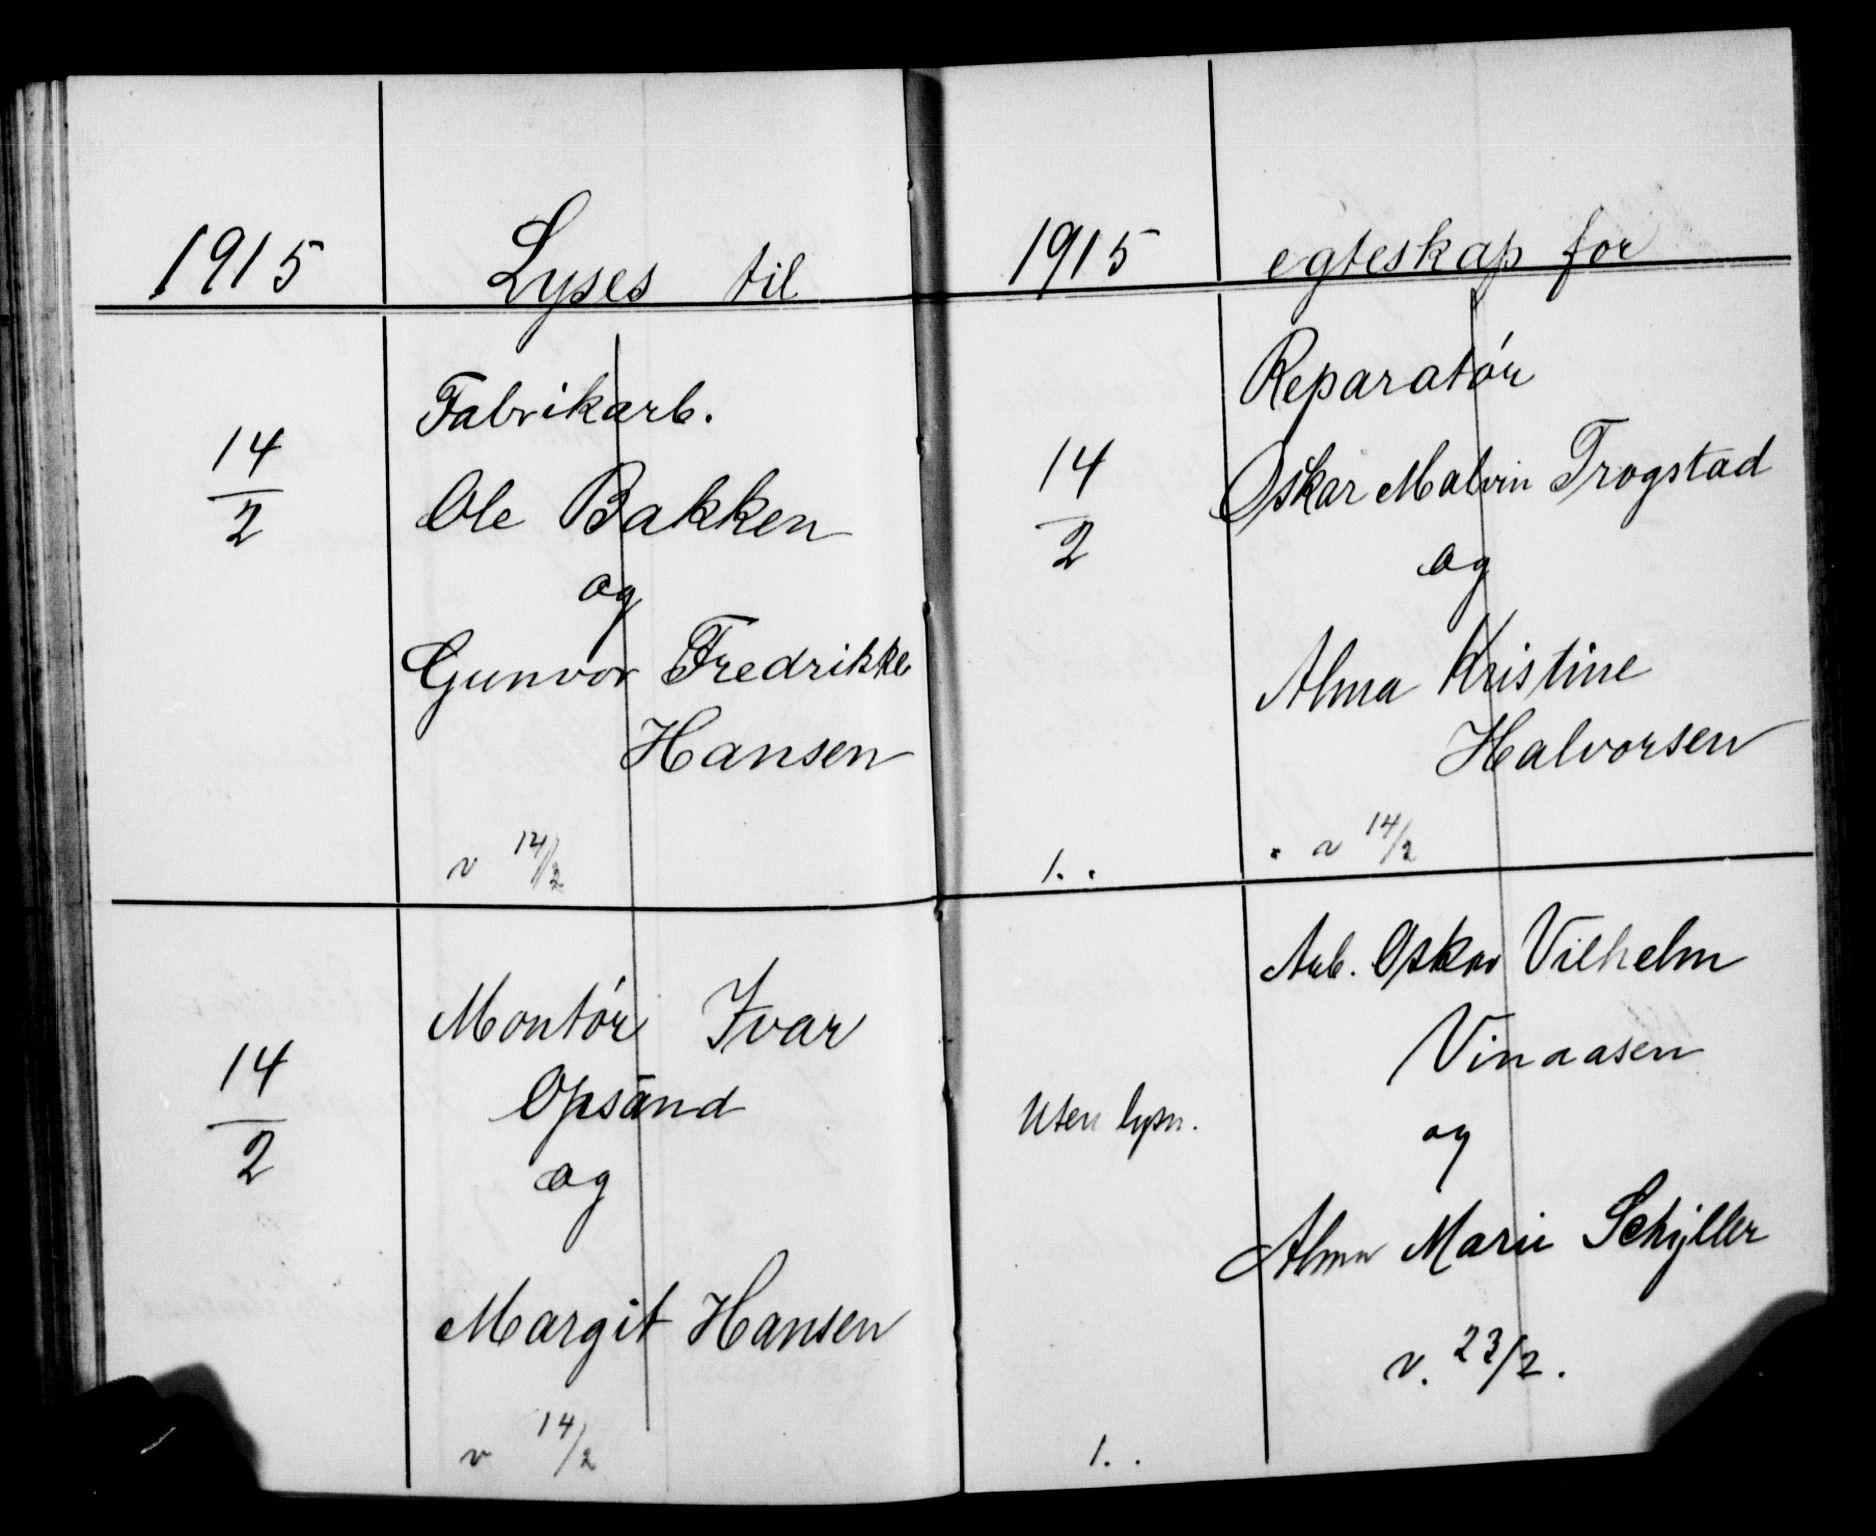 1915 Lyses til
Fabrikarb.
14/2 Ole Bakken
og
Gunvor Fredrikke
Hansen
v 14/2
Montór Ivar
14/2 Opsand
og
Margit Hansen
v 14/2
1915 egteskap for
Reparatór
14/2 Oskar Malvin Trogstad
og
Alma Kristine
Halvorsen
1. . . v 14/2
Arb. Oskar Vilhelm
Vinaasen
Uten lysn. og
Alma Marie Schÿller
v. 23/2.
1. .